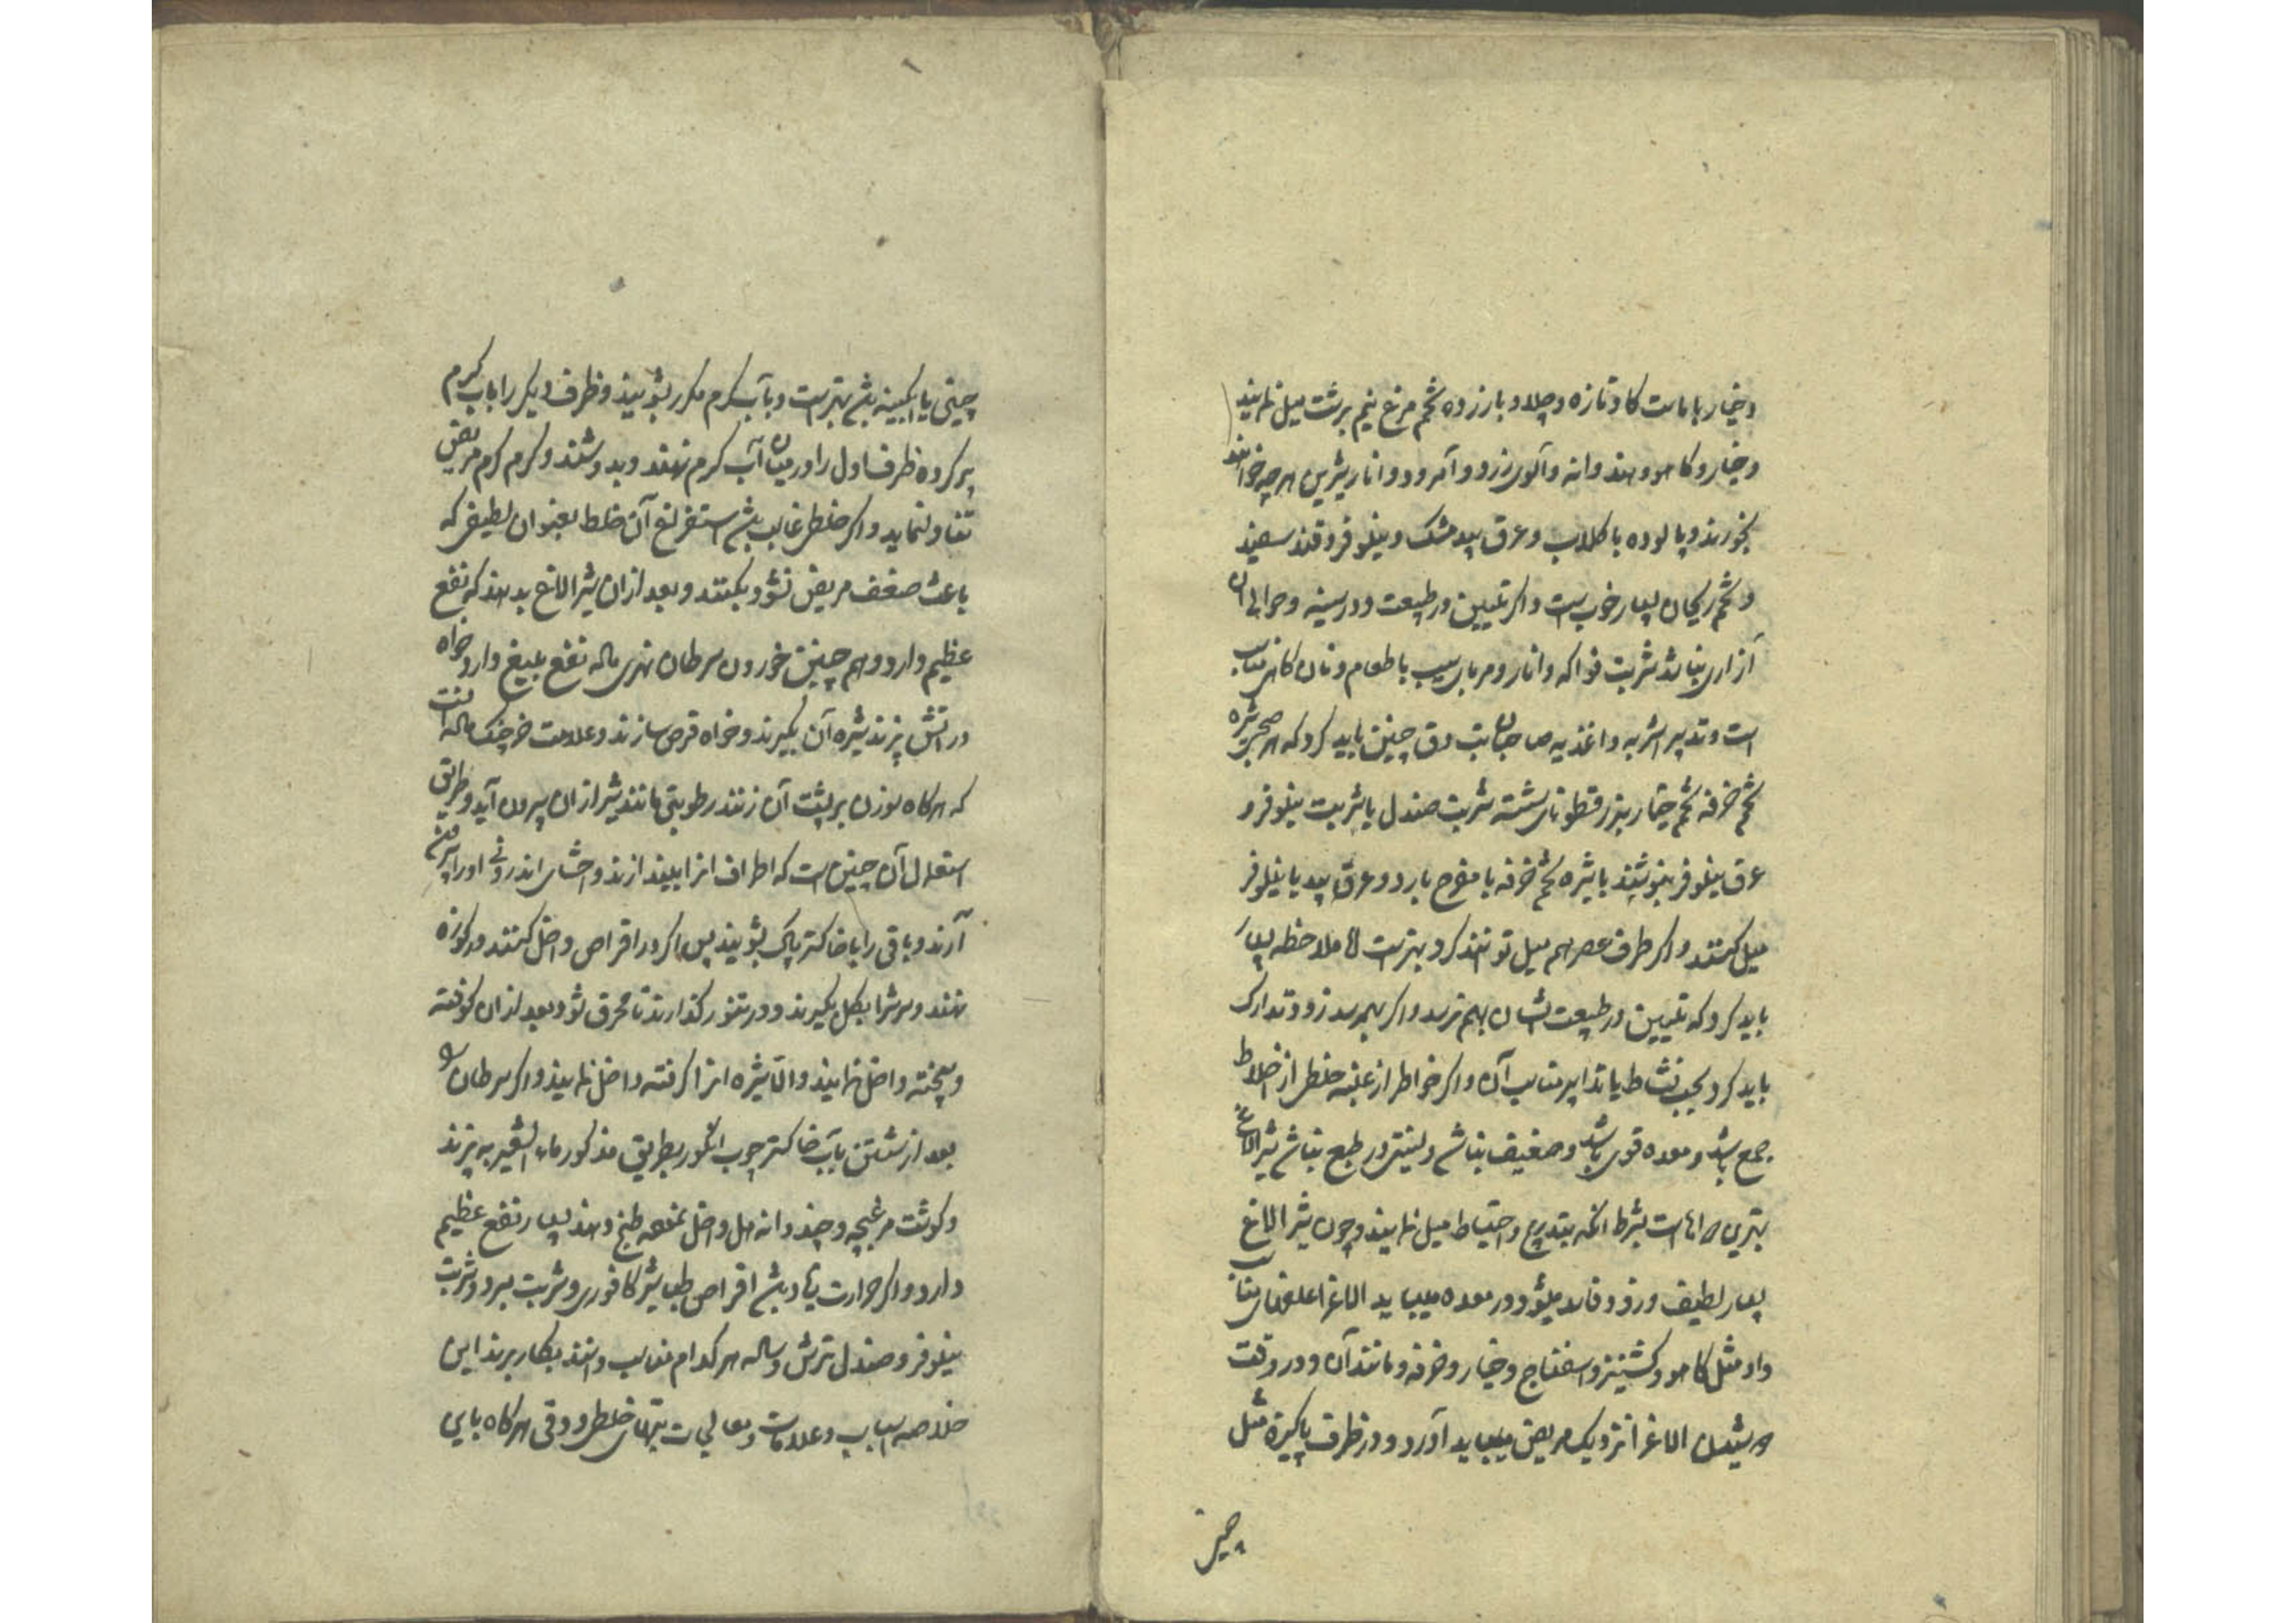 و خیار با ماست کاو تازه و چلاو با زرده تخم مرغ نیم برشت میل نمایند
و خیار و کاهو و هندوانه و آلوی زرد و آمرود و انار شیرین هر چه خواهند
بخورند و پالوده با کلاب و عرق بیدمشک و نیلوفر و قند سفید
و تخم ریحان بسیار خوب است و اکر تلیین در طبیعت و در سینه و حوالی آن
آزاری نباشد شربت فواکه و انار و مربای سیب با طعام و نان کاهی مناسب
است و تدبیر اشربه و اغذیه صاحبان تب دق چنین باید کرد که هر صبح شیره
تخم خرفه تخم خیار بزرقطونای شسته شربت صندل یا شربت نیلوفر و
عرق نیلوفر بنوشند یا شیره تخم خرفه با مفرح بارد و عرق بید یا نیلوفر
میل کنند و اکر طرف عصر هم میل توانند کرد بهتر است اما ملاحظه بسیار
باید کرد که تلیین در طبیعت ایشان بهم نرسد و اکر بهم رسد زود تدارک
باید کرد بحب نشاط یا تدابیر مناسب آن و اکر خواطر از غلبه خلطی از اخلاط
جمع باشد و معده قوی باشد و ضعیف نباشد و لینتی در طبع نباشد شیر الاغ
بهترین دواهاست بشرط آنکه بتدریج و احتیاط میل نمایند و چون شیر الاغ
بسیار لطیف و زود فاسد میشود در معده میباید الاغ را علفهای مناسب
داد مثل کاهو و کشنیز و اسفناج و خیار و خرفه و مانند آن و در وقت
دوشیدن الاغ را نزدیک مریض میباید آورد و در ظرف پاکیزه مثل
چینی
چینی یا آبکینه باشد بهتر است و بآب کرم مکرر بشویند و ظرف دیکر را بآب کرم
پر کرده ظرف اول را در میان آب کرم نهند و بدوشند و کرم کرم مریض
تناول نماید و اکر خلطی غالب باشد استفراغ آن خلط بعنوان لطیفی که
باعث ضعف مریض نشود بکنند و بعد از آن شیر الاغ بدهند که نفع
عظیم دارد و هم چنین خوردن سرطان نهری ماده نفع بلیغ دارد خواه
در آتش پزند شیره آن بکیرند و خواه قرص سازند و علامت خرچنک ماده آنست
که هر کاه سوزن بر پشت آن زنند رطوبتی مانند شیر از آن بیرون آید و طریق
استعمال آن چنین است که اطراف آنرا بیندازند و احشای اندرونی او را بیرون
آرند و باقی را با خاکستر پاک بشویند پس اکر در اقراص داخل کنند در کوزه
نهند و سرش را بکل بکیرند و در تنور کذارند تا محرق شود و بعد از آن کوفته
و بیخته داخل نمایند و الا شیره آنرا کرفته داخل نمایند و اکر سرطان را
بعد از شستن بآب خاکستر چوب انکور بطریق مذکور ماء الشعیر به پزند
و کوشت مرغ بچه و چند دانه هل داخل نموده طبخ دهند بسیار نفع عظیم
دارد و اکر حرارت زیاد باشد اقراص طباشیر کافوری و شربت مبرد و شربت
نیلوفر و صندل ترش و ساده هر کدام مناسب دانند بکار برند این
خلاصه اسباب و علامات و معالجات تبهای خلطی و دقی هر کاه باین